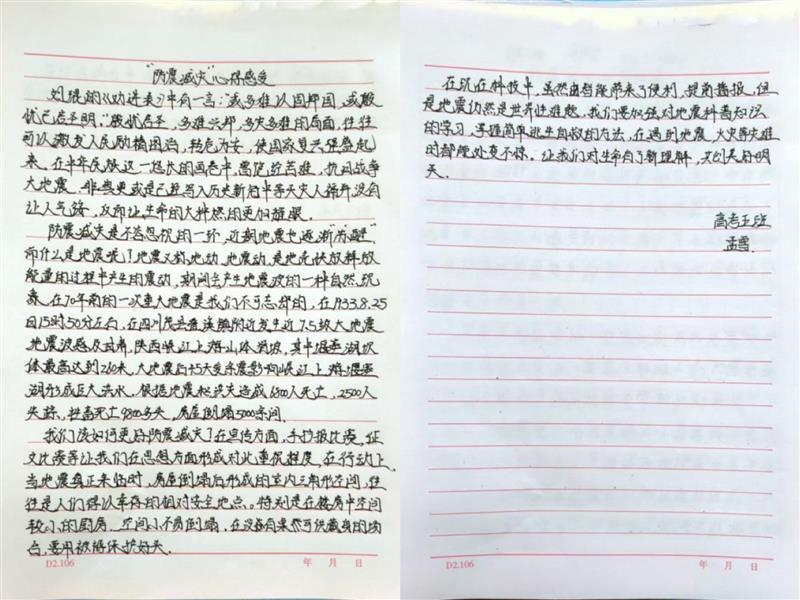 "防震减灾"心得感受
刘琨的《劝进表》中有言:"或多难以固邦国,或殷
忧已启圣明。"殷忧启圣,多难兴邦,多灾多难的局面,往往
可以激发人民励精图治,转危为安,使国家复兴强盛起
来。在中华民族这一悠长的画卷中,富范近苦难,抗日战争
大地震,非典更或是已经写入历史新冠中等天灾人祸并没有
让人气馁,反而让生命的火种燃的更加耀眼。
防震减灾是不容忽视的一环,近期地震也逐渐"苏醒"
而什么是地震呢?地震又称地动、地震动,是地壳快放释放
能量的过程中产生的震动,期间会产生地震波的一种自然现
象。在70年前的一次重大地震是我们不可忘却的,在1933.8.25
日15时50分左右,在四川茂县叠溪镇附近发生近7.5级大地震
地震波感及甘肃,陕西岷江上游山体滑坡,其中堰塞湖坝
体最高达到260米,大地震后45天受余震影响岷江上游堰塞
湖形成巨大洪水,根据地震和洪灾造成6800人死亡,2500人
失踪,牲畜死亡9800多头,房屋倒塌5000余间。
我们该如何更好防震减灾?在宣传方面,手抄报比赛,征
文比赛等让我们在思想方面形成对此重视程度,在行动上,
当地震真正来临时,房屋倒塌后形成的室内三角形空间,往
往是人们得以幸存的相对安全地点。特别是在楼房中空间
较小的厨房,空间小不易倒塌,在没有可供藏身的场
合,要用被褥保护好头。
D2.106
年 月 日
在现在科技中,虽然由智能带来了便利,提前播报,但
是地震仍然是世界性难题,我们要加强对地震科普知识
的学习,掌握简单逃生自救的方法,在遇到地震,火灾等灾难
时都能处变不惊。让我们对生命有了新理解,共创美好明
天。
高考五班
孟雪
D2.106
年 月 日